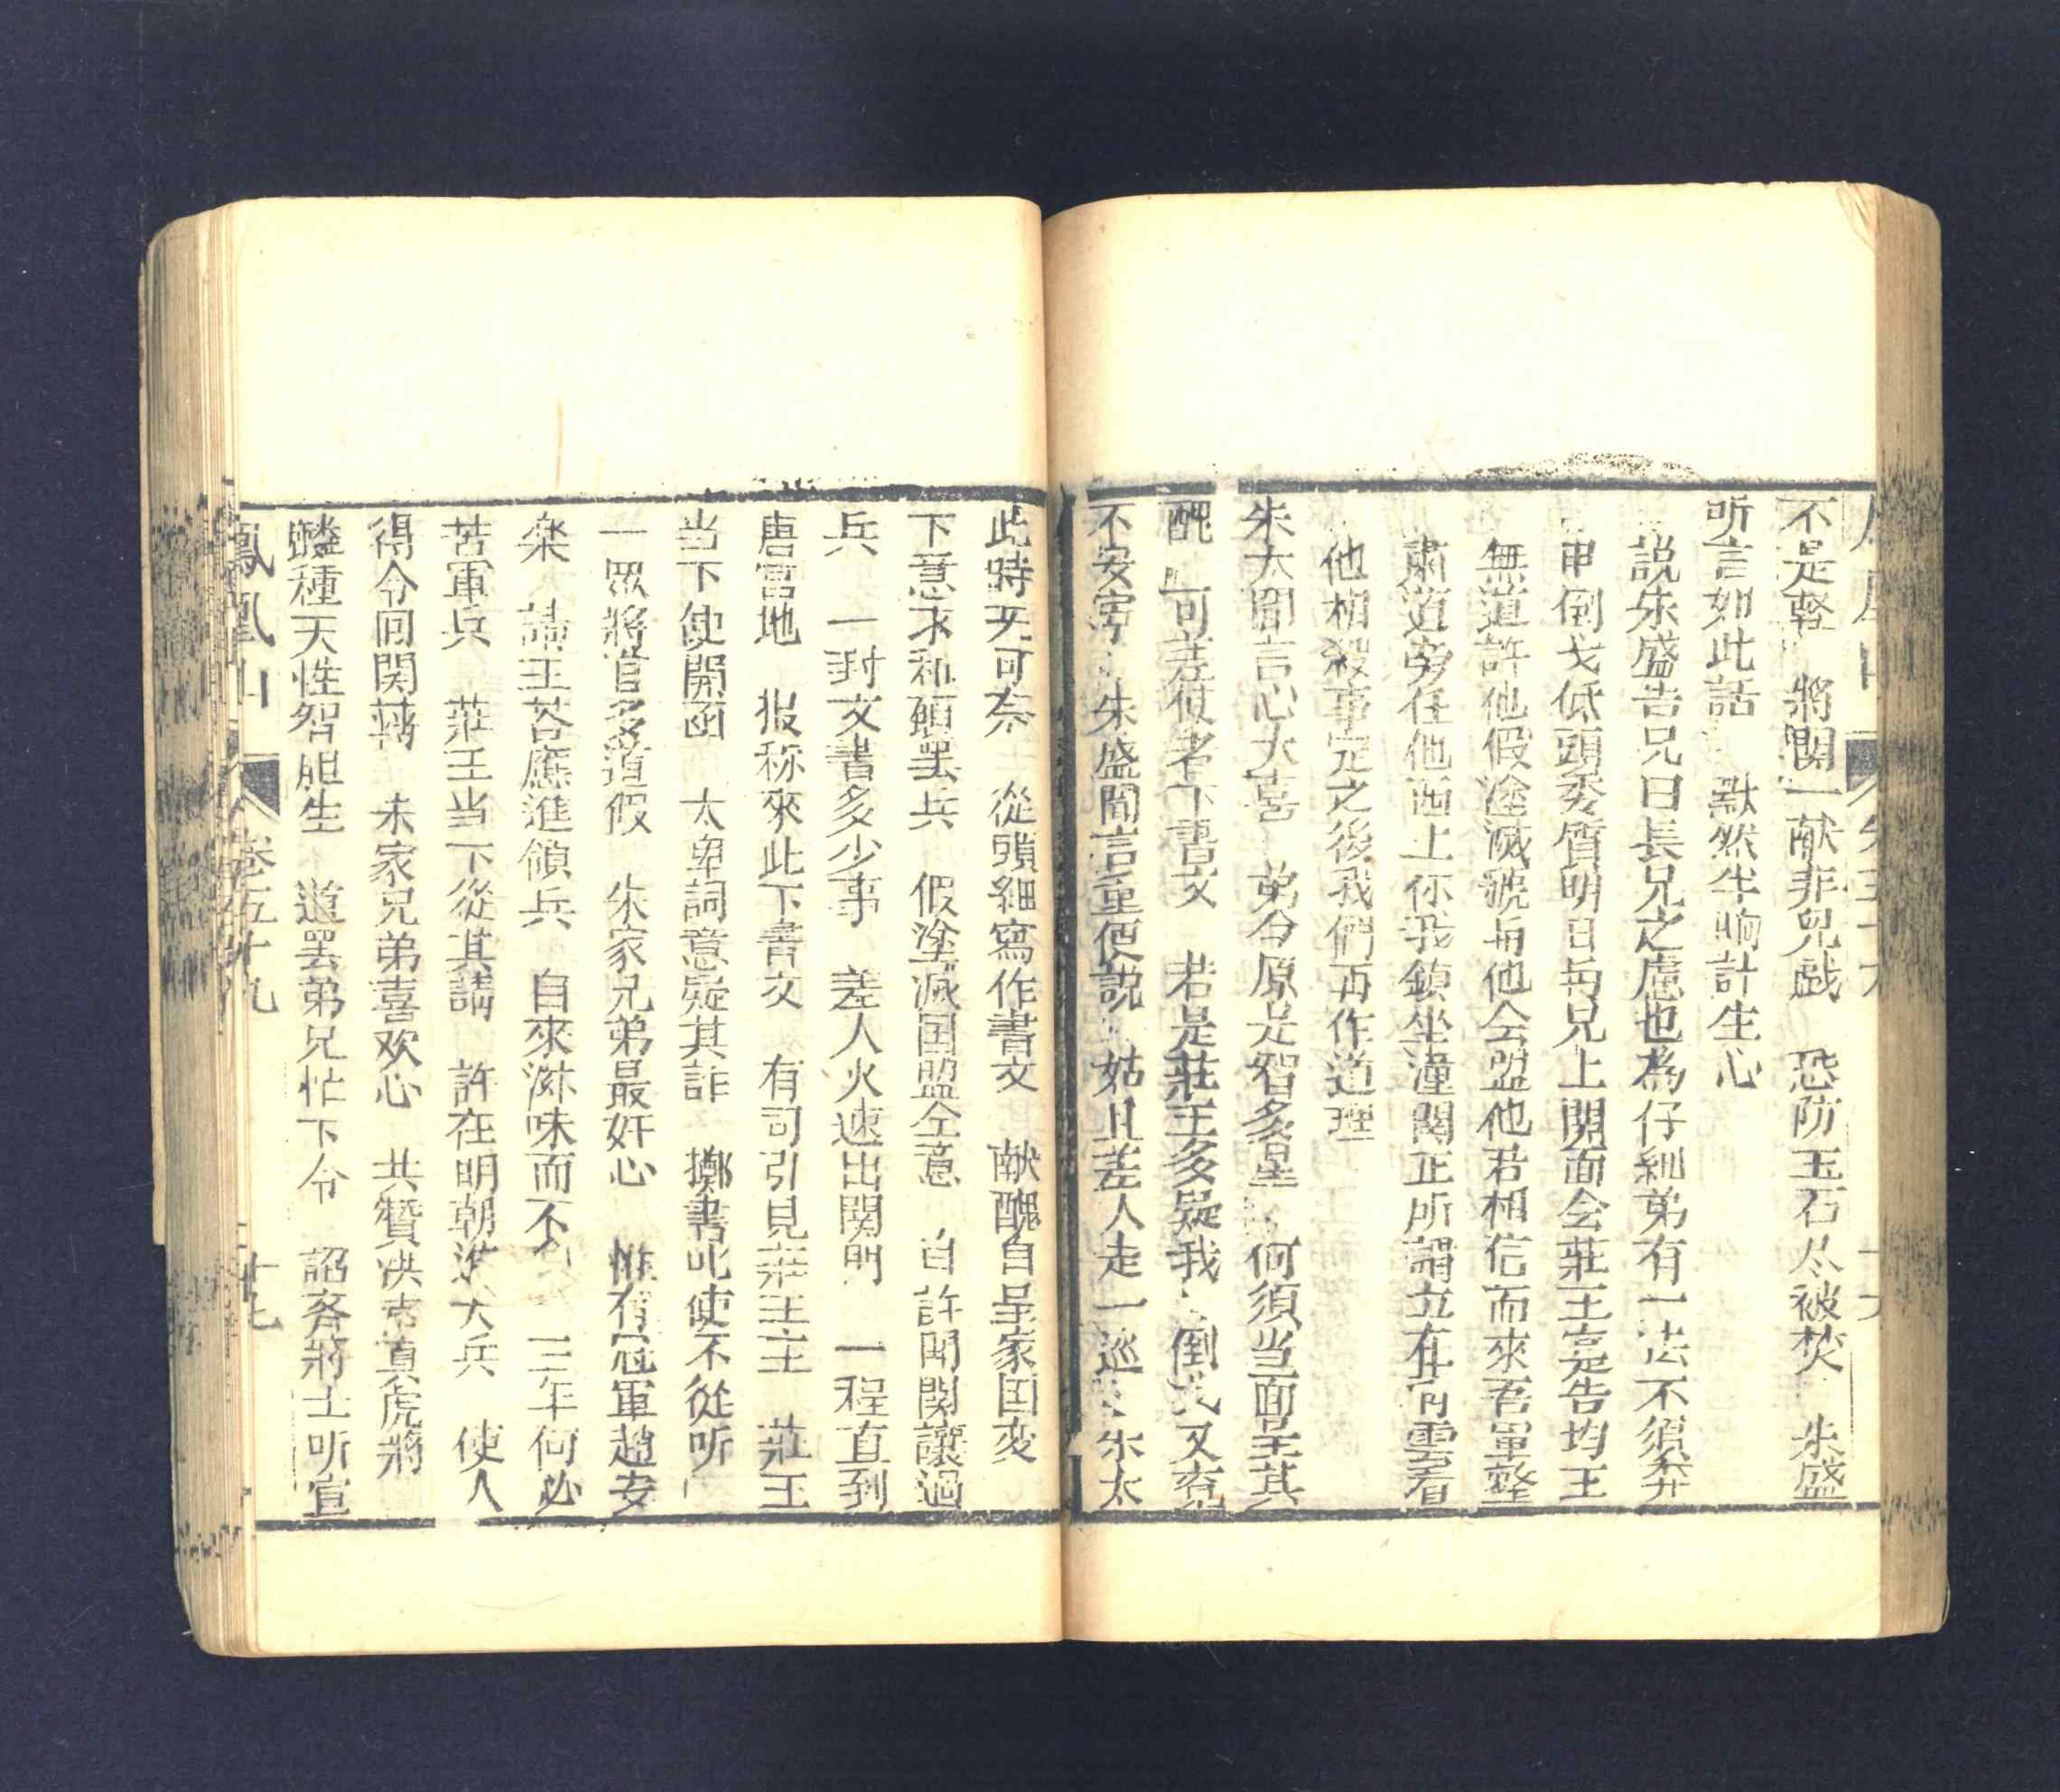 不是輕 將関一献非兒戯 恐防玉石尽被焚 朱盛
听言如此話 默然半晌計生心
説朱盛告兄曰長兄之慮也為仔細弟有一法不須弃
甲倒戈低頭委質明日与兄上関面会莊王寔告均王
無道許他假塗滅虢与他会盟他若相信而來吾軍整
肅道旁任他西上你我鎖坐潼関正所謂立在雲看
他相殺事完之後我們再作道理
朱太聞言心大喜 弟台原是智多星 何須当面呈其
醜 可差使者下書文 若是莊王多疑我 倒戈又
不安寧 朱盛聞言重便説 姑且差人走一巡 朱太
此時无可奈 從頭細寫作書文 献醜自呈家国变
下意求和願罢兵 假塗滅国盟仝意 自許開関讓過
兵 一封文書多少事 差人火速出関門 一程直到
唐营地 报称來此下書文 有司引見莊王主 莊王
当下使開函 太卑詞意疑其詐 擲書叱使不從听
一眾將官多道假 朱家兄弟最奸心 惟有冠軍趙安
楽 諫王荅應進領兵 自來滋味而不 三年何必
苦軍兵 莊王当下從其請 許在明朝進大兵 使人
得令回関轉 未家兄弟喜欢心 共贊决虎將
種天性智胆生 道罢弟兄忙下令 詔斉將士听宣
鳳凰山 卷五十九 廿七